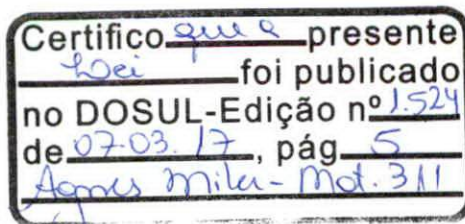 Certifico que a presente
Lei foi publicado
no DOSUL-Edição nº 1.524
de 07-03.17, pág 5
Agnes Miler - Mat. 311